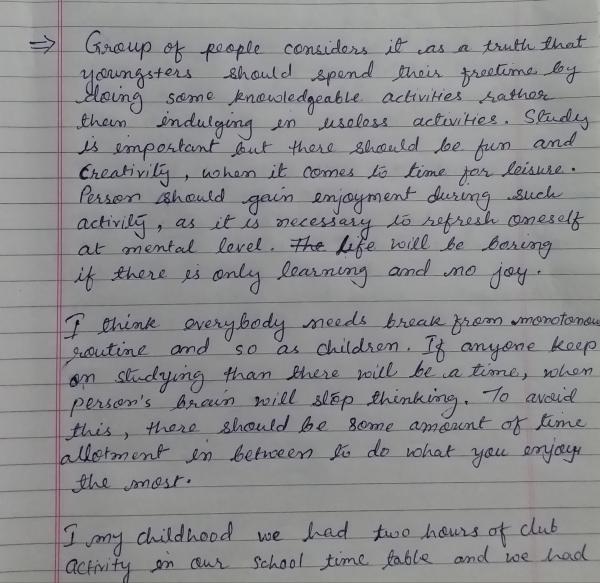 ⇒ Group of people considers it as a truth that
youngsters should spend their freetime by
doing some knowledgeable activities rather
then indulging in useless activities. Study
is important but there should be fun and
creativity, when it comes to time for leisure.
Person should gain enjoyment during such
activity, as it is necessary to refresh oneself
at mental level. The life will be boring
if there is only learning and no joy.
I think everybody needs break from monotonou
routine and so as children. If anyone keep
on studying than there will be a time, when
person's brain will stop thinking. To avoid
this, there should be some amount of time
allotment in between to do what you enjoy
the most.
I my childhood we had two hours of club
activity in our school time table and we had